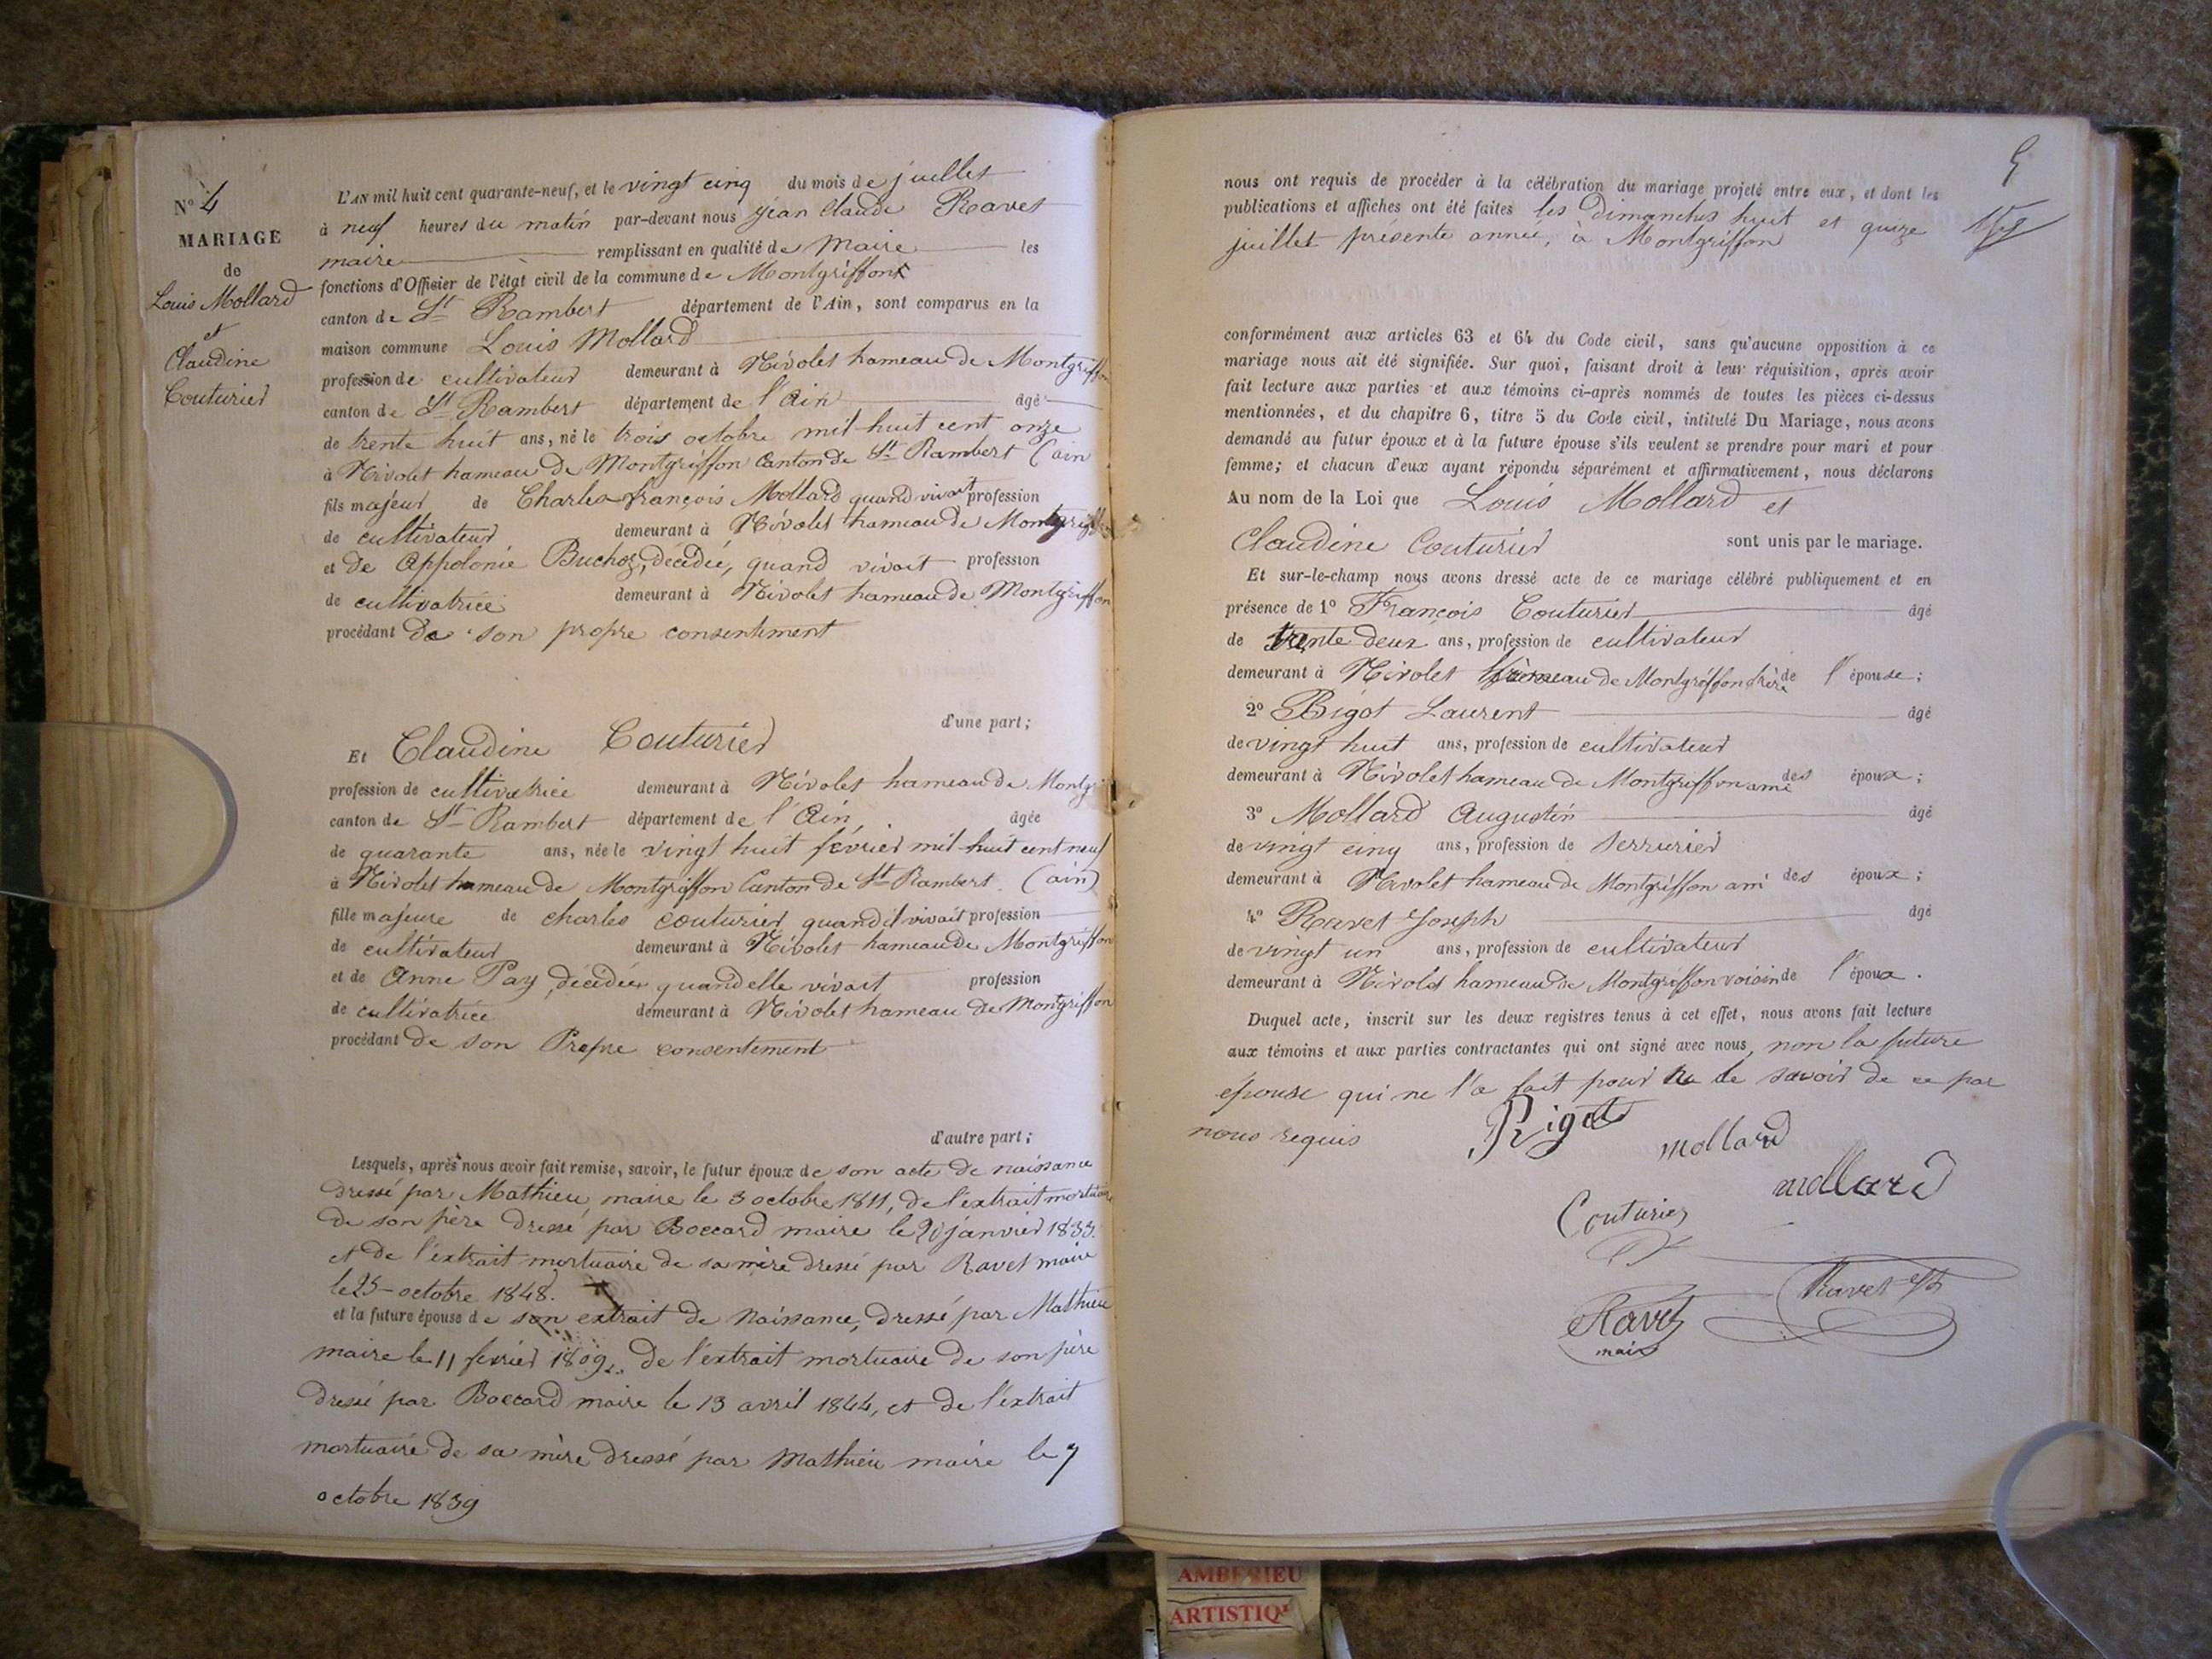 N° 4
MARIAGE
de
Louis Mollard
et
Claudine
Couturier
L'AN mil huit cent quarante-neuf, et le vingt cinq du mois de juillet
à neuf heures du matin par-devant nous jean Claude Ravet
maire remplissant en qualité de Maire les
fonctions d'Officier de l'état civil de la commune de Montgriffon
canton de St Rambert département de l'Ain, sont comparus en la
maison commune Louis Mollard
profession de cultivateur demeurant à Nivolet hameau de Montgriffon
canton de St Rambert département de l'Ain âgé
de trente huit ans, né le trois octobre mil huit cent onze
à Nivolet hameau de Montgriffon Canton de St Rambert (ain
fils majeur de Charles françois Mollard quand vivait profession
de cultivateur demeurant à Nivolet hameau de Montgriffon
et de Appolonie Buchoz, décédée, quand vivait profession
de cultivatrice demeurant à Nivolet hameau de Montgriffon
procédant de son propre consentiment
d'une part;
Et Claudine Couturier
profession de cultivatrice demeurant à Nivolet hameau de Montgri
canton de St Rambert département de l'Ain, âgée
de quarante ans, née le vingt huit fevrier mil huit cent neuf
à Nivolet hameau de Montgriffon Canton de St Rambert (ain)
fille majeure de charles couturier quand il vivait profession
de cultivateur demeurant à Nivolet hameau de Montgriffon
et de Anne Pay, décédée quand elle vivait profession
de cultivatrice demeurant à Nivolet hameau de Montgriffon
procédant de son Propre consentement
d'autre part;
Lesquels, après nous avoir fait remise, savoir, le futur époux de son acte de naissance
dressé par Mathieu maire le 3 octobre 1811, de l'extrait mortuaire
de son père dressé par Boccard maire le 20 janvier 1833.
et de l'extrait mortuaire de sa mère dressé par Ravet maire
le 25 octobre 1848.
et la future épouse de son extrait de Naissance, dressé par Mathieu
maire le 11 fevrier 1809, de l'extrait mortuaire de son père
dressé par Boccard maire le 13 avril 1844, et de l'extrait
mortuaire de sa mère dressé par Mathieu maire le 7
octobre 1839
nous ont requis de procéder à la célébration du mariage projeté entre eux, et dont les
publications et affiches ont été faites les Dimanches huit et quize
juillet présente année, à Montgriffon
conformément aux articles 63 et 64 du Code civil, sans qu'aucune opposition à ce
mariage nous ait été signifiée. Sur quoi, faisant droit à leur réquisition, après avoir
fait lecture aux parties et aux témoins ci-après nommés de toutes les pièces ci-dessus
mentionnées, et du chapitre 6, titre 5 du Code civil, intitulé Du Mariage, nous avons
demandé au futur époux et à la future épouse s'ils veulent se prendre pour mari et pour
femme; et chacun d'eux ayant répondu séparément et affirmativement, nous déclarons
Au nom de la Loi que Louis Mollard et
Claudine Couturier sont unis par le mariage.
Et sur-le-champ nous avons dressé acte de ce mariage célébré publiquement et en
présence de 1° François Couturier âgé
de trente deux ans, profession de cultivateur
demeurant à Nivolet hameau de Montgriffon frère de l'épouse;
2° Bigot Laurent âgé
de vingt huit ans, profession de cultivateur
demeurant à Nivolet hameau de Montgriffon ami des époux;
3° Mollard Augustin âgé
de vingt cinq ans, profession de serrurier
demeurant à Nivolet hameau de Montgriffon ami des époux;
4° Ravet Joseph âgé
de vingt un ans, profession de cultivateur
demeurant à Nivolet hameau de Montgriffon voisin de l'époux.
Duquel acte, inscrit sur les deux registres tenus à cet effet, nous avons fait lecture
aux témoins et aux parties contractantes qui ont signé avec nous, non la future
épouse qui ne l'a fait pour ne le savoir de ce par
nous requis
Bigot
Mollard
mollard
Couturier
Ravet
Ravet
maire
AMBERIEU
ARTISTIQ